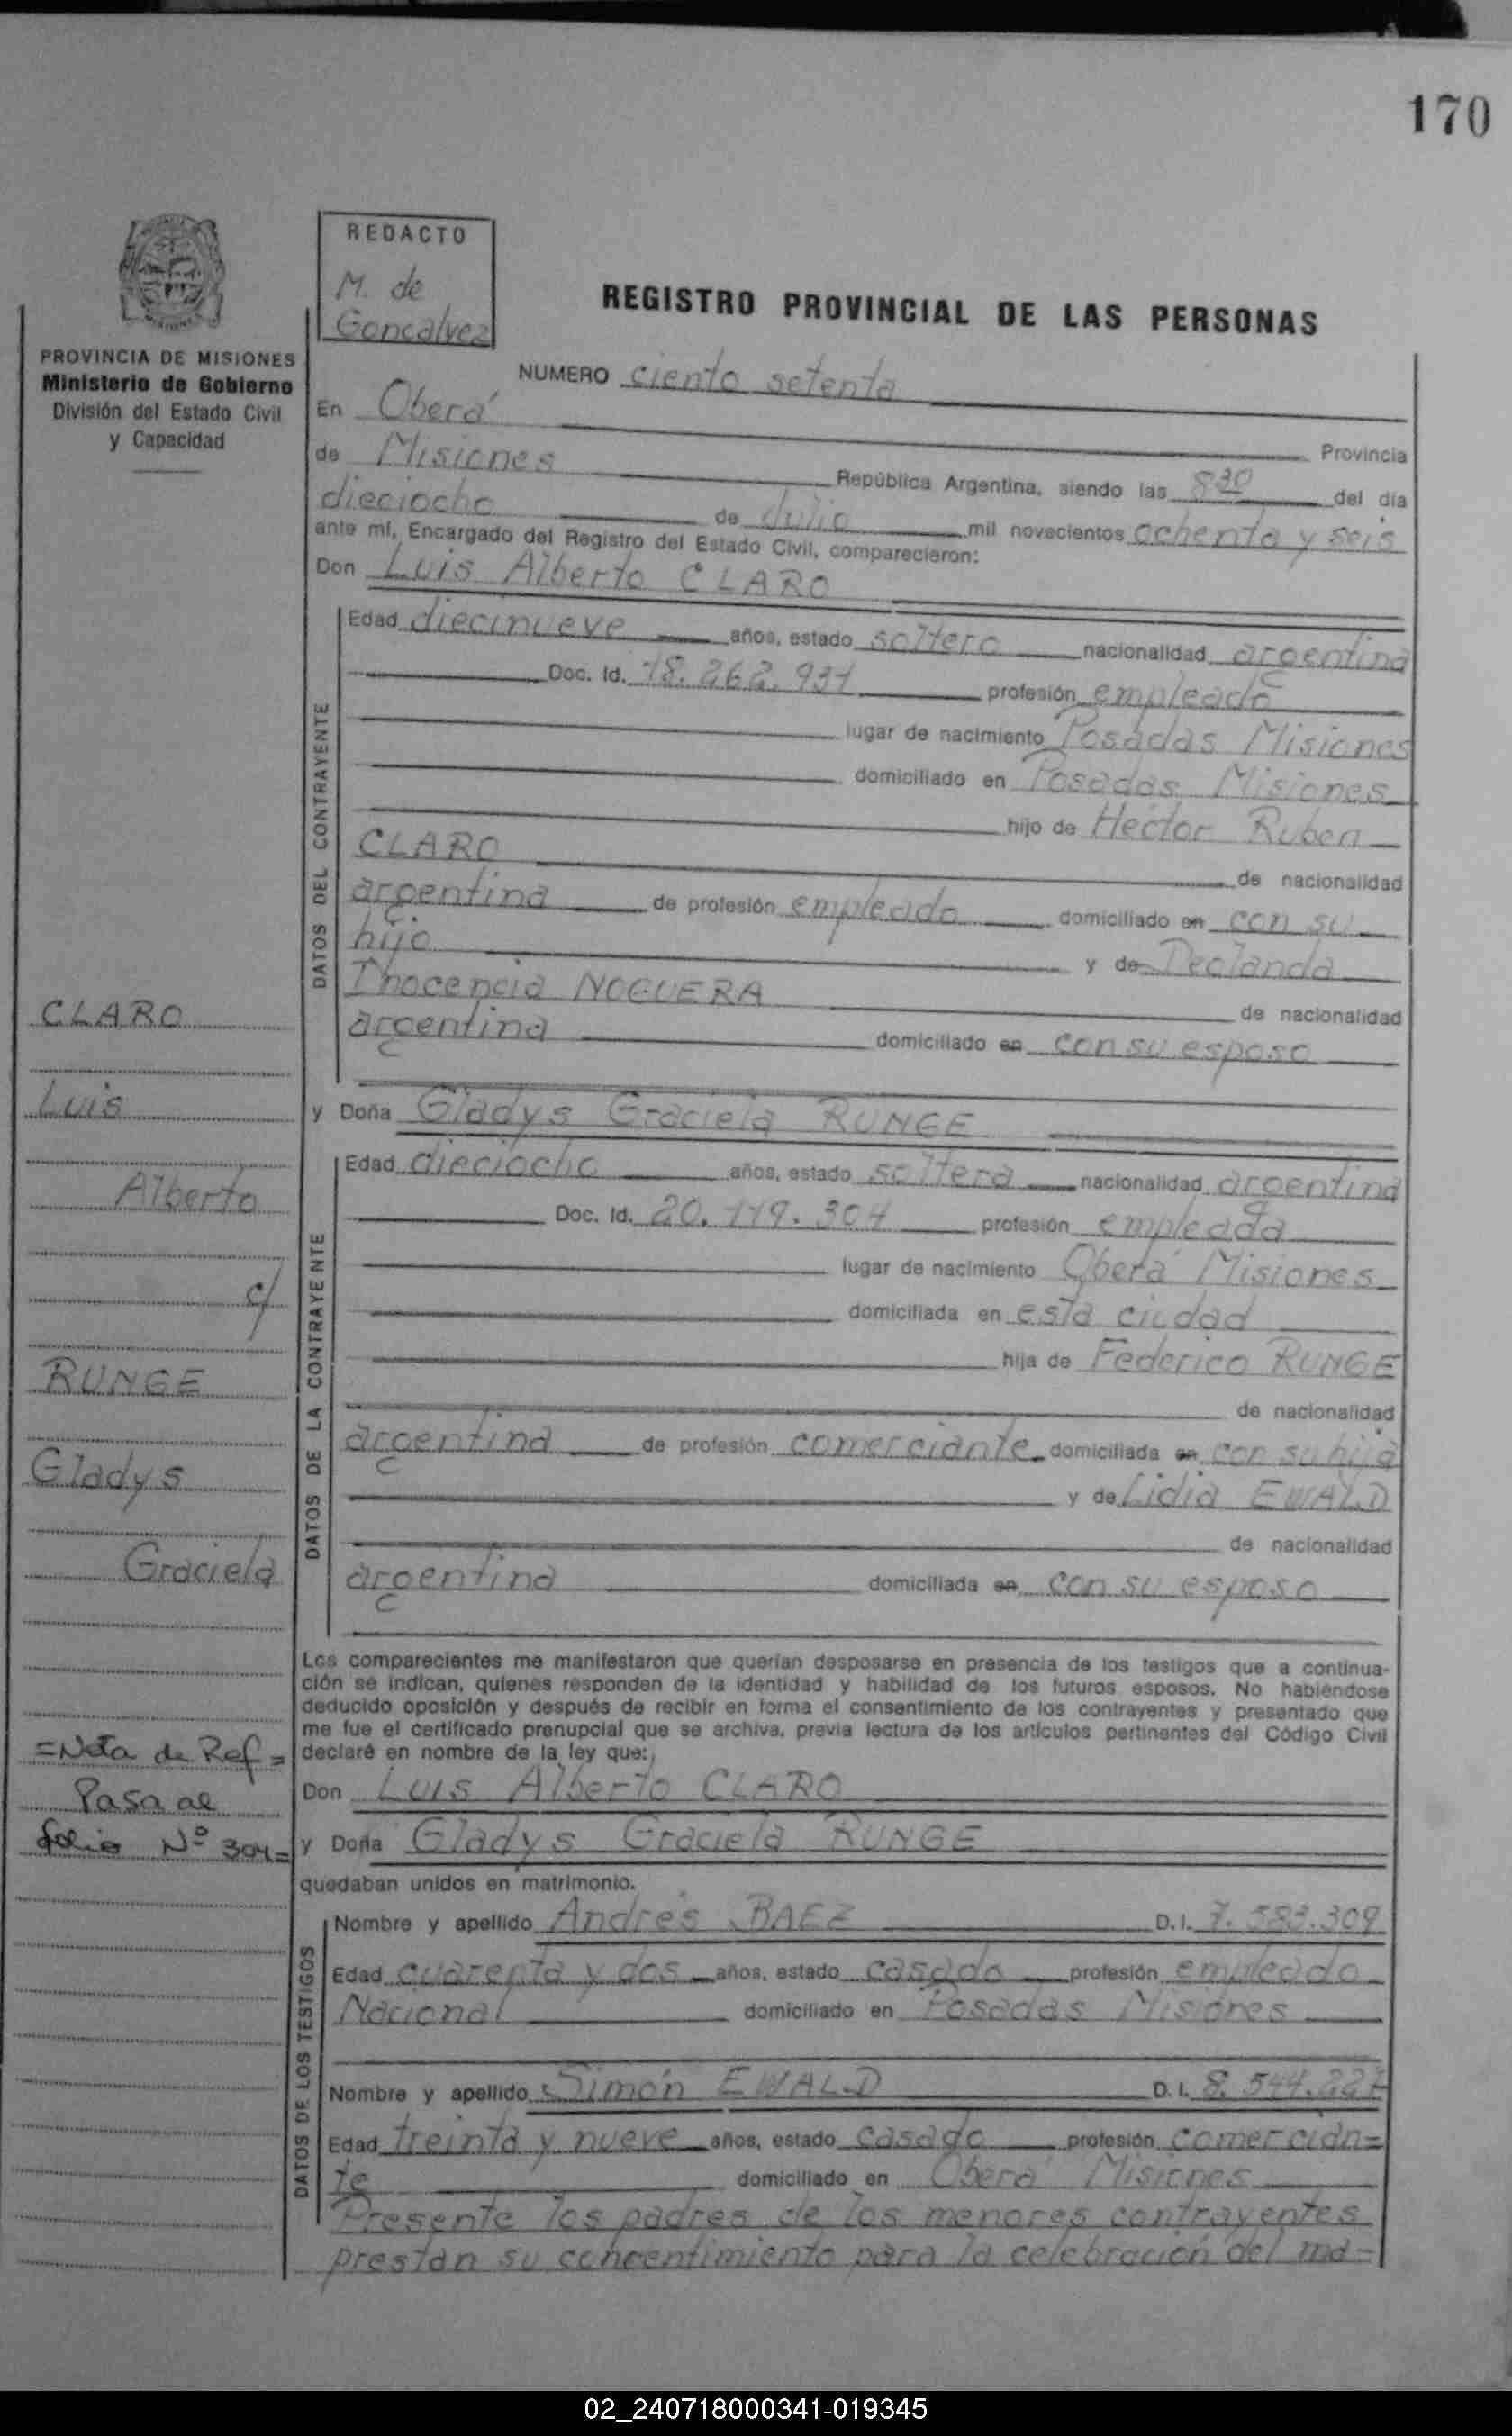 170
REDACTO
M. de
Goncalvez
REGISTRO PROVINCIAL DE LAS PERSONAS
PROVINCIA DE MISIONES
Ministerio de Gobierno
División del Estado Civil
y Capacidad
NUMERO ciento setenta
En Oberá
Provincia
de Misiones República Argentina, siendo las 8 30 del día
dieciocho de Julio mil novecientos ochenta y seis
ante mí, Encargado del Registro del Estado Civil, comparecieron:
Don Luis Alberto CLARO
DATOS DEL CONTRAYENTE
Edad diecinueve años, estado soltero nacionalidad argentina
Doc. Id. 18.262.931 profesión empleado
lugar de nacimiento Posadas Misiones
domiciliado en Posadas Misiones
hijo de Héctor Ruben
CLARO de nacionalidad
argentina de profesión empleado domiciliado en con su
hijo y de Deolanda
Inocencia NOGUERA de nacionalidad
argentina domiciliado en con su esposo
y Doña Gladys Graciela RUNGE
DATOS DE LA CONTRAYENTE
Edad dieciocho años, estado soltera nacionalidad argentina
Doc. Id. 20.119.304 profesión empleada
lugar de nacimiento Oberá Misiones
domiciliada en esta ciudad
hija de Federico RUNGE
de nacionalidad
argentina de profesión comerciante domiciliada en con su hija
y de Lidia EWALD
de nacionalidad
argentina domiciliada en con su esposo
Los comparecientes me manifestaron que querían desposarse en presencia de los testigos que a continua-
ción se indican, quienes responden de la identidad y habilidad de los futuros esposos. No habiéndose
deducido oposición y después de recibir en forma el consentimiento de los contrayentes y presentado que
me fue el certificado prenupcial que se archiva, previa lectura de los artículos pertinentes del Código Civil
declaré en nombre de la ley que:
Don Luis Alberto CLARO
y Doña Gladys Graciela RUNGE
quedaban unidos en matrimonio.
DATOS DE LOS TESTIGOS
Nombre y apellido Andrés BAEZ D.I. 7.583.309
Edad cuarenta y dos años, estado casado profesión empleado
Nacional domiciliado en Posadas Misiones
Nombre y apellido Simón EWALD D.I. 8.544.227
Edad treinta y nueve años, estado casado profesión comercian=
te domiciliado en Oberá Misiones
Presente los padres de los menores contrayentes
prestan su concentimiento para la celebración del ma=
CLARO
Luis
Alberto
c/
RUNGE
Gladys
Graciela
=Nota de Ref=
Pasa al
folio Nº 304=
02_240718000341-019345